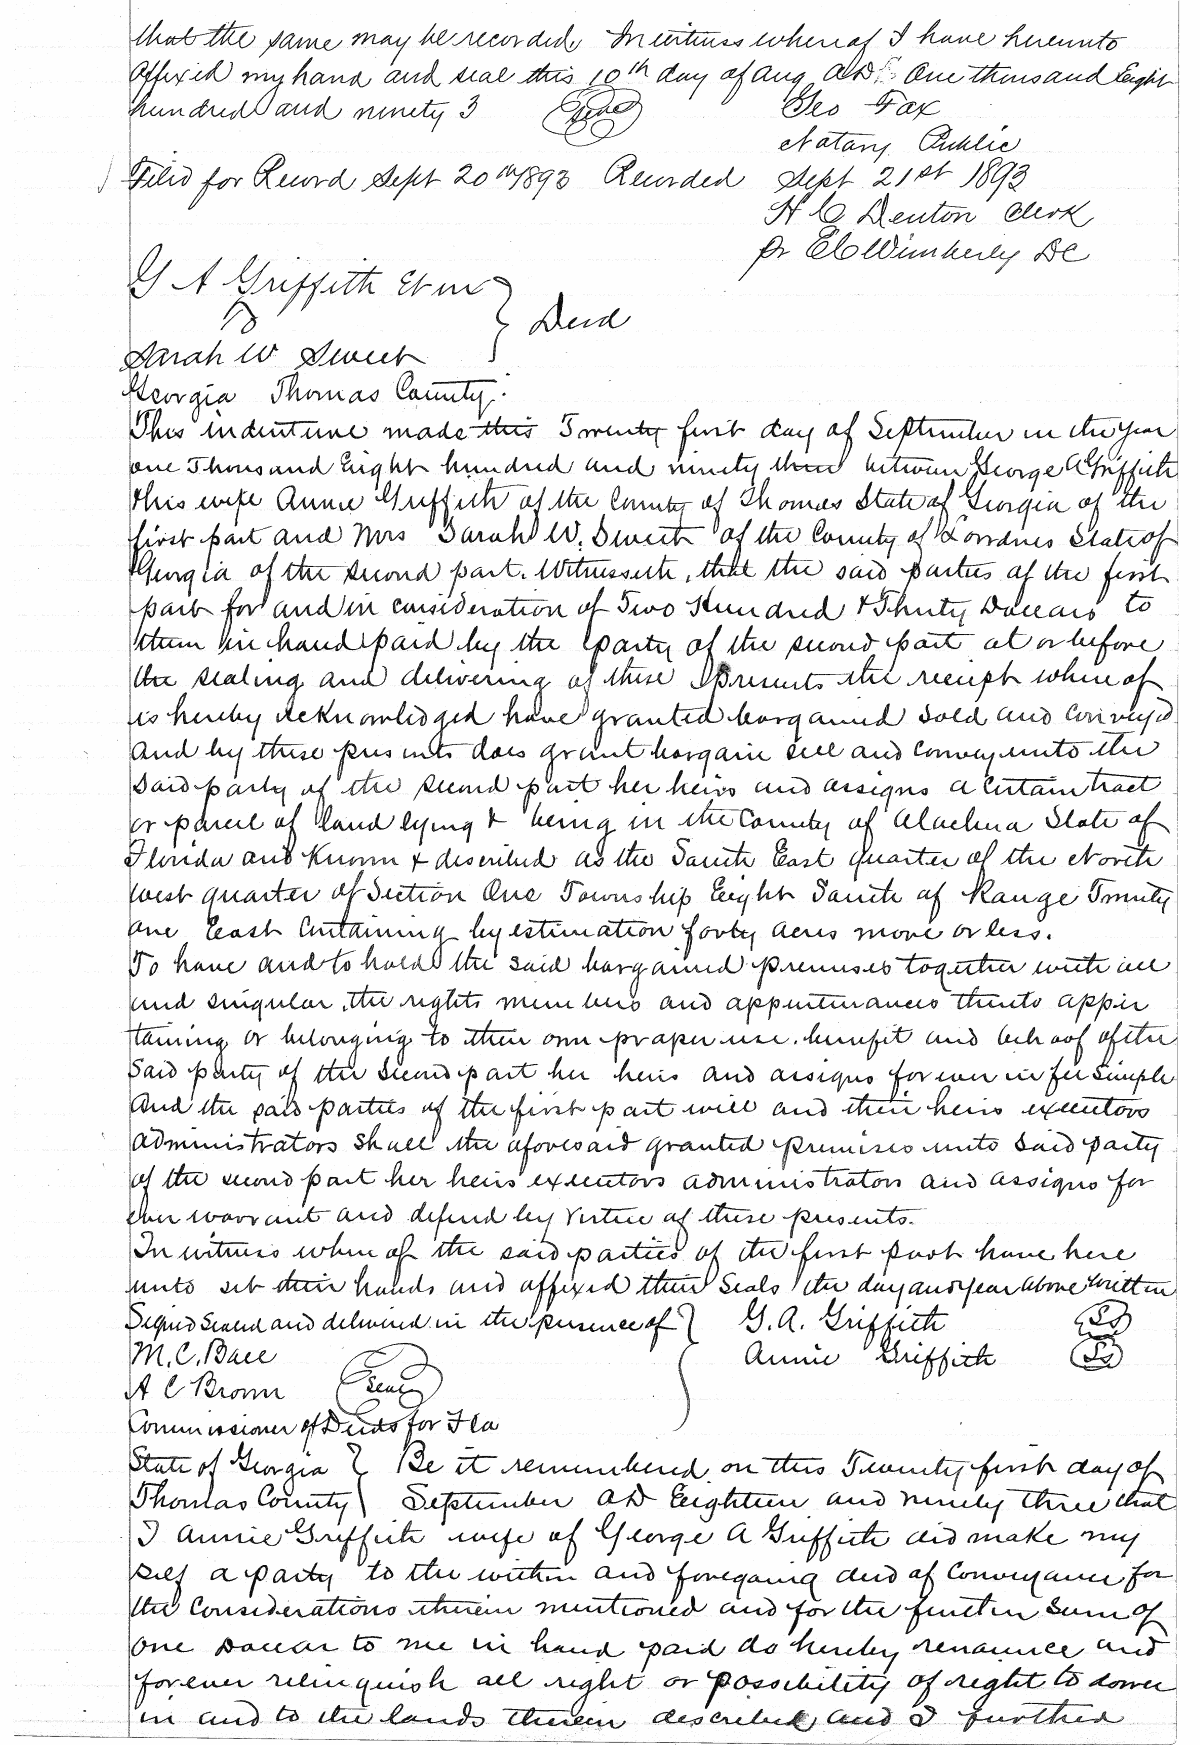 that the same may be recorded, In witness whereof I have hereunto
affixed my hand and seal this 10th day of Aug AD. One thousand Eight
hundred and ninety 3 (Seal) Geo Fax
Notary Public
Filed for Record Sept 20th 1893 Recorded Sept 21st 1893
H C Denton Clerk
pr E C Wimberly DC
G A Griffith Et ux
To } Deed
Sarah W Sweet
Georgia Thomas County.
This indenture made this Twenty first day of September in the Year
one Thousand Eight hundred and ninety three between George A Griffith
& his wife Annie Griffith of the County of Thomas State of Georgia of the
first part and Mrs Sarah W. Sweet of the County of Lowndes State of
Georgia of the second part. Witnesseth, that the said parties of the first
part for and in consideration of Two Hundred & Thirty Dollars to
them in hand paid by the party of the second part at or before
the sealing and delivering of these presents the receipt whereof
is hereby acknowledged have granted bargained sold and convey'd
and by these presents does grant bargain sell and convey unto the
said party of the second part her heirs and assigns a certain tract
or parcel of land lying & being in the County of Alachua State of
Florida and Known & described as the South East quarter of the North
west quarter of Section One Township Eight South of Range Twenty
one East Containing by estimation forty acres more or less.
To have and to hold the said bargained premises together with all
and singular, the rights members and appurtenances thereto apper
taining or belonging to their own proper use. benefit and behoof of the
Said party of the Second part her heirs and assigns forever in fee Simple
And the said parties of the first part will and their heirs executors
administrators shall the aforesaid granted premises unto said party
of the second part her heirs executors administrators and assigns for
ever warrant and defend by Virtue of these presents.
In witness whereof the said parties of the first part have here
unto set their hands and affixed their Seals the day and year above written
Signed Sealed and delivered in the presence of } G. A. Griffith (LS)
M. C. Ball Annie Griffith (LS)
A C Brown (Seal)
Commissioner of Deeds for Fla
State of Georgia } Be it remembered, on this Twenty first day of
Thomas County } September AD Eighteen and ninety three that
I Annie Griffith wife of George A Griffith did make my
self a party to the within and foregoing deed of Conveyance for
the Considerations therein mentioned and for the further Sum of
One Dollar to me in hand paid do hereby renounce and
forever relinquish all right or possibility of right to dower
in and to the lands therein described and I further